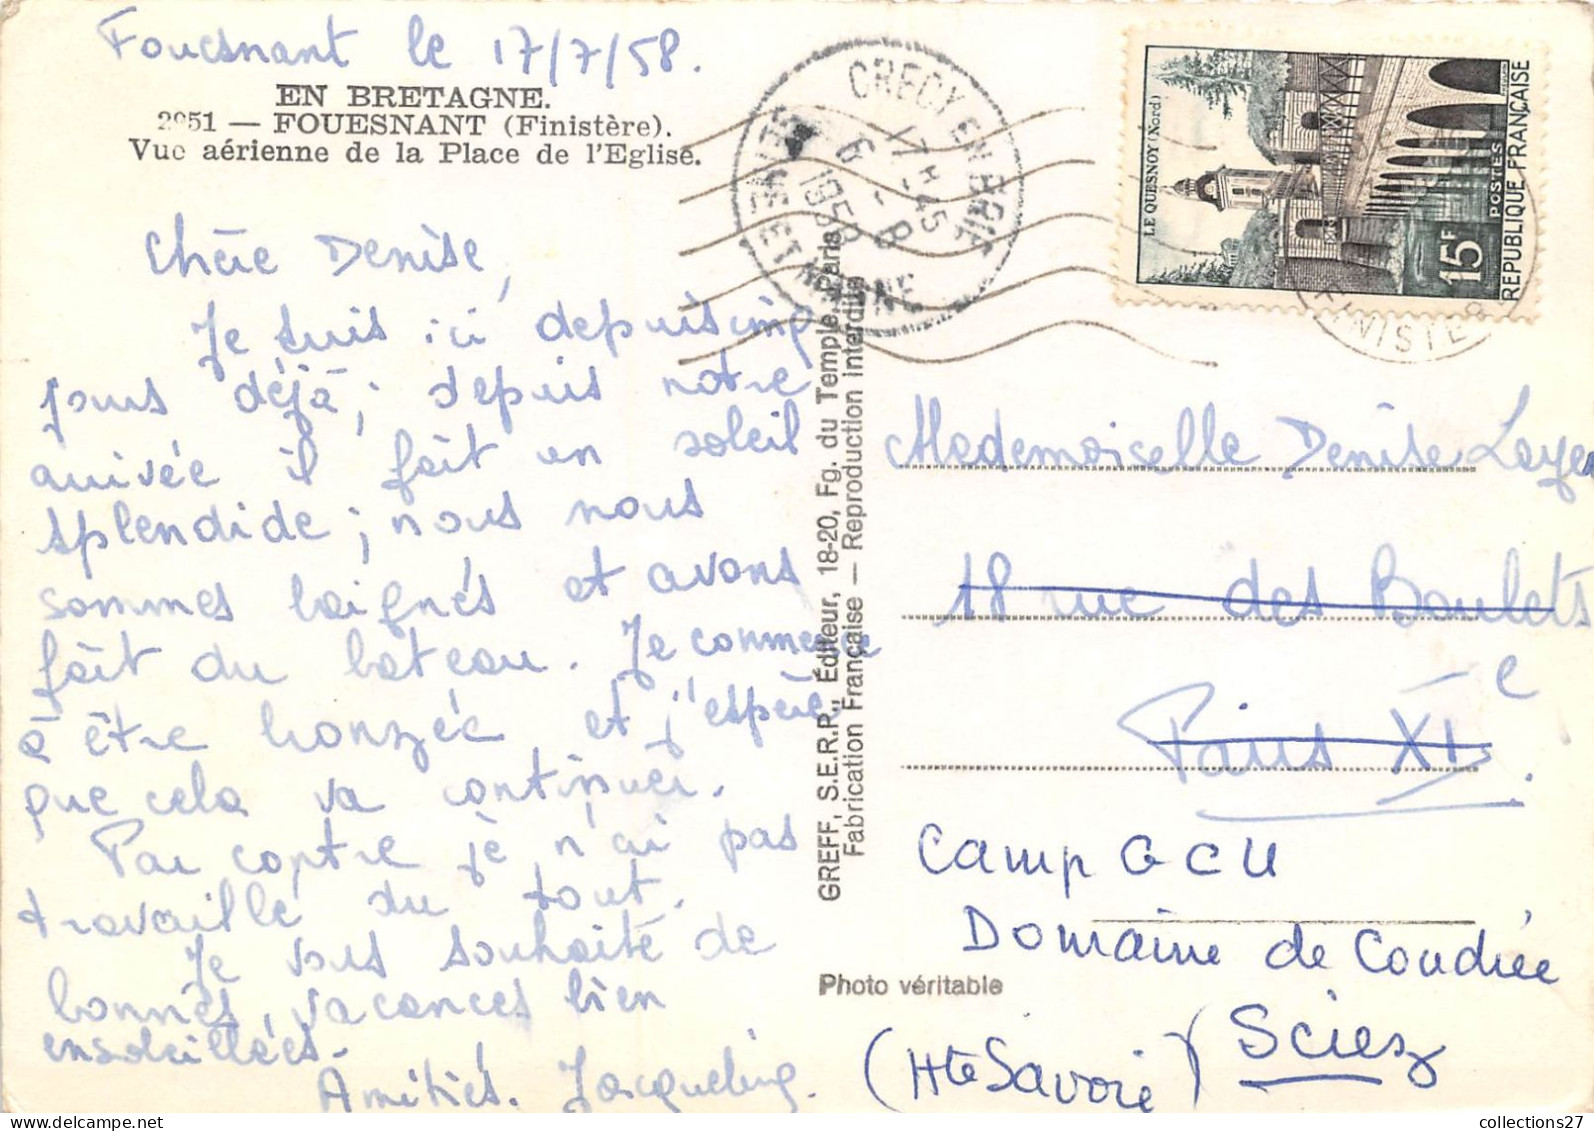 Fouesnant le 17/7/58.
EN BRETAGNE.
2951 — FOUESNANT (Finistère).
Vue aérienne de la Place de l'Eglise.
Chère Denise,
Je suis ici depuis cinq
jours déjà ; depuis notre
arrivée il fait un soleil
splendide ; nous nous
sommes baignés et avons
fait du bateau. Je commence
à être bronzée et j'espère
que cela va continuer.
Par contre je n'ai pas
travaillé du tout.
Je vous souhaite de
bonnes vacances bien
ensoleillées.
Amitiés. Jacqueline.
GREFF, S.E.R.P., Éditeur, 18-20, Fg. du Temple, Paris
Fabrication Française — Reproduction interdite
Photo véritable
CRECY EN BRIE
17H45
6 - 8
1958
SEINE ET MARNE
LE QUESNOY (Nord)
15F
POSTES
REPUBLIQUE FRANÇAISE
FINISTE
Mademoiselle Denise Layen
18 rue des Boulets
Paris XIe.
Camp GCU
Domaine de Coudrée
Sciez
(Hte Savoie)
collections27